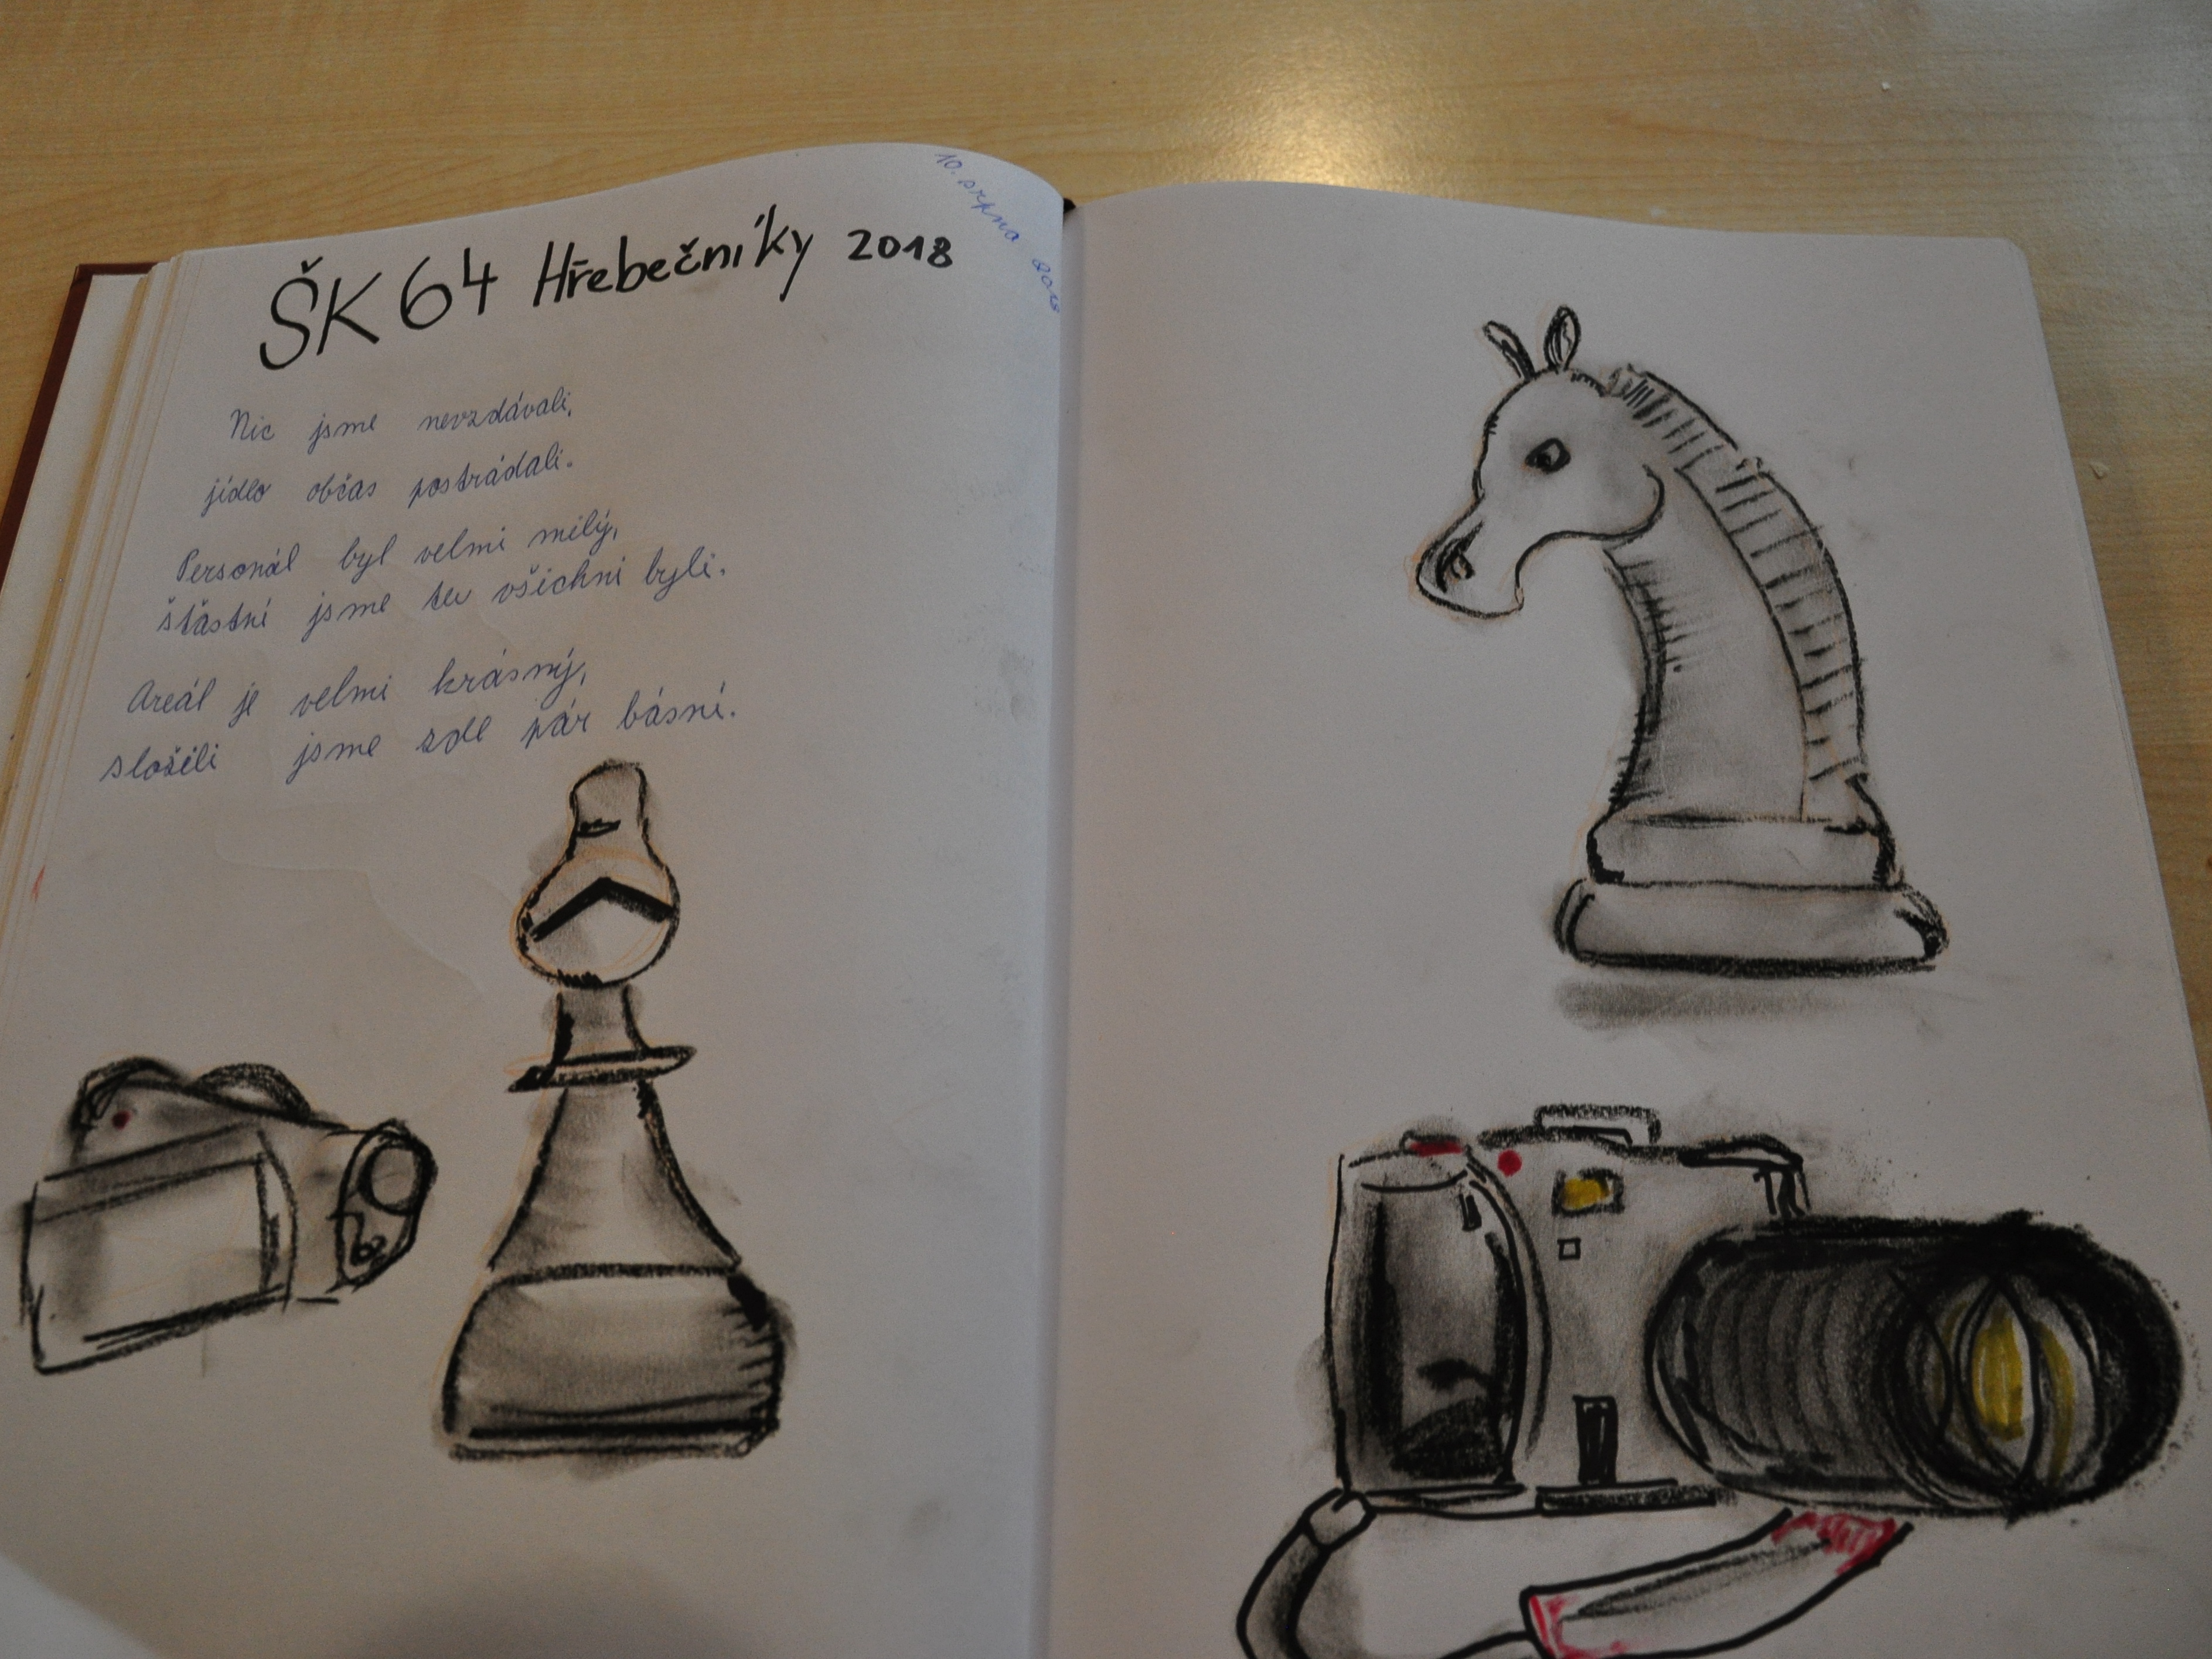 10. srpna 2018
ŠK 64 Hřebečníky 2018
Nic jsme nevzdávali,
jídlo občas postrádali.
Personál byl velmi milý,
šťastní jsme tu všichni byli.
Areál je velmi krásný,
složili jsme zde pár básní.